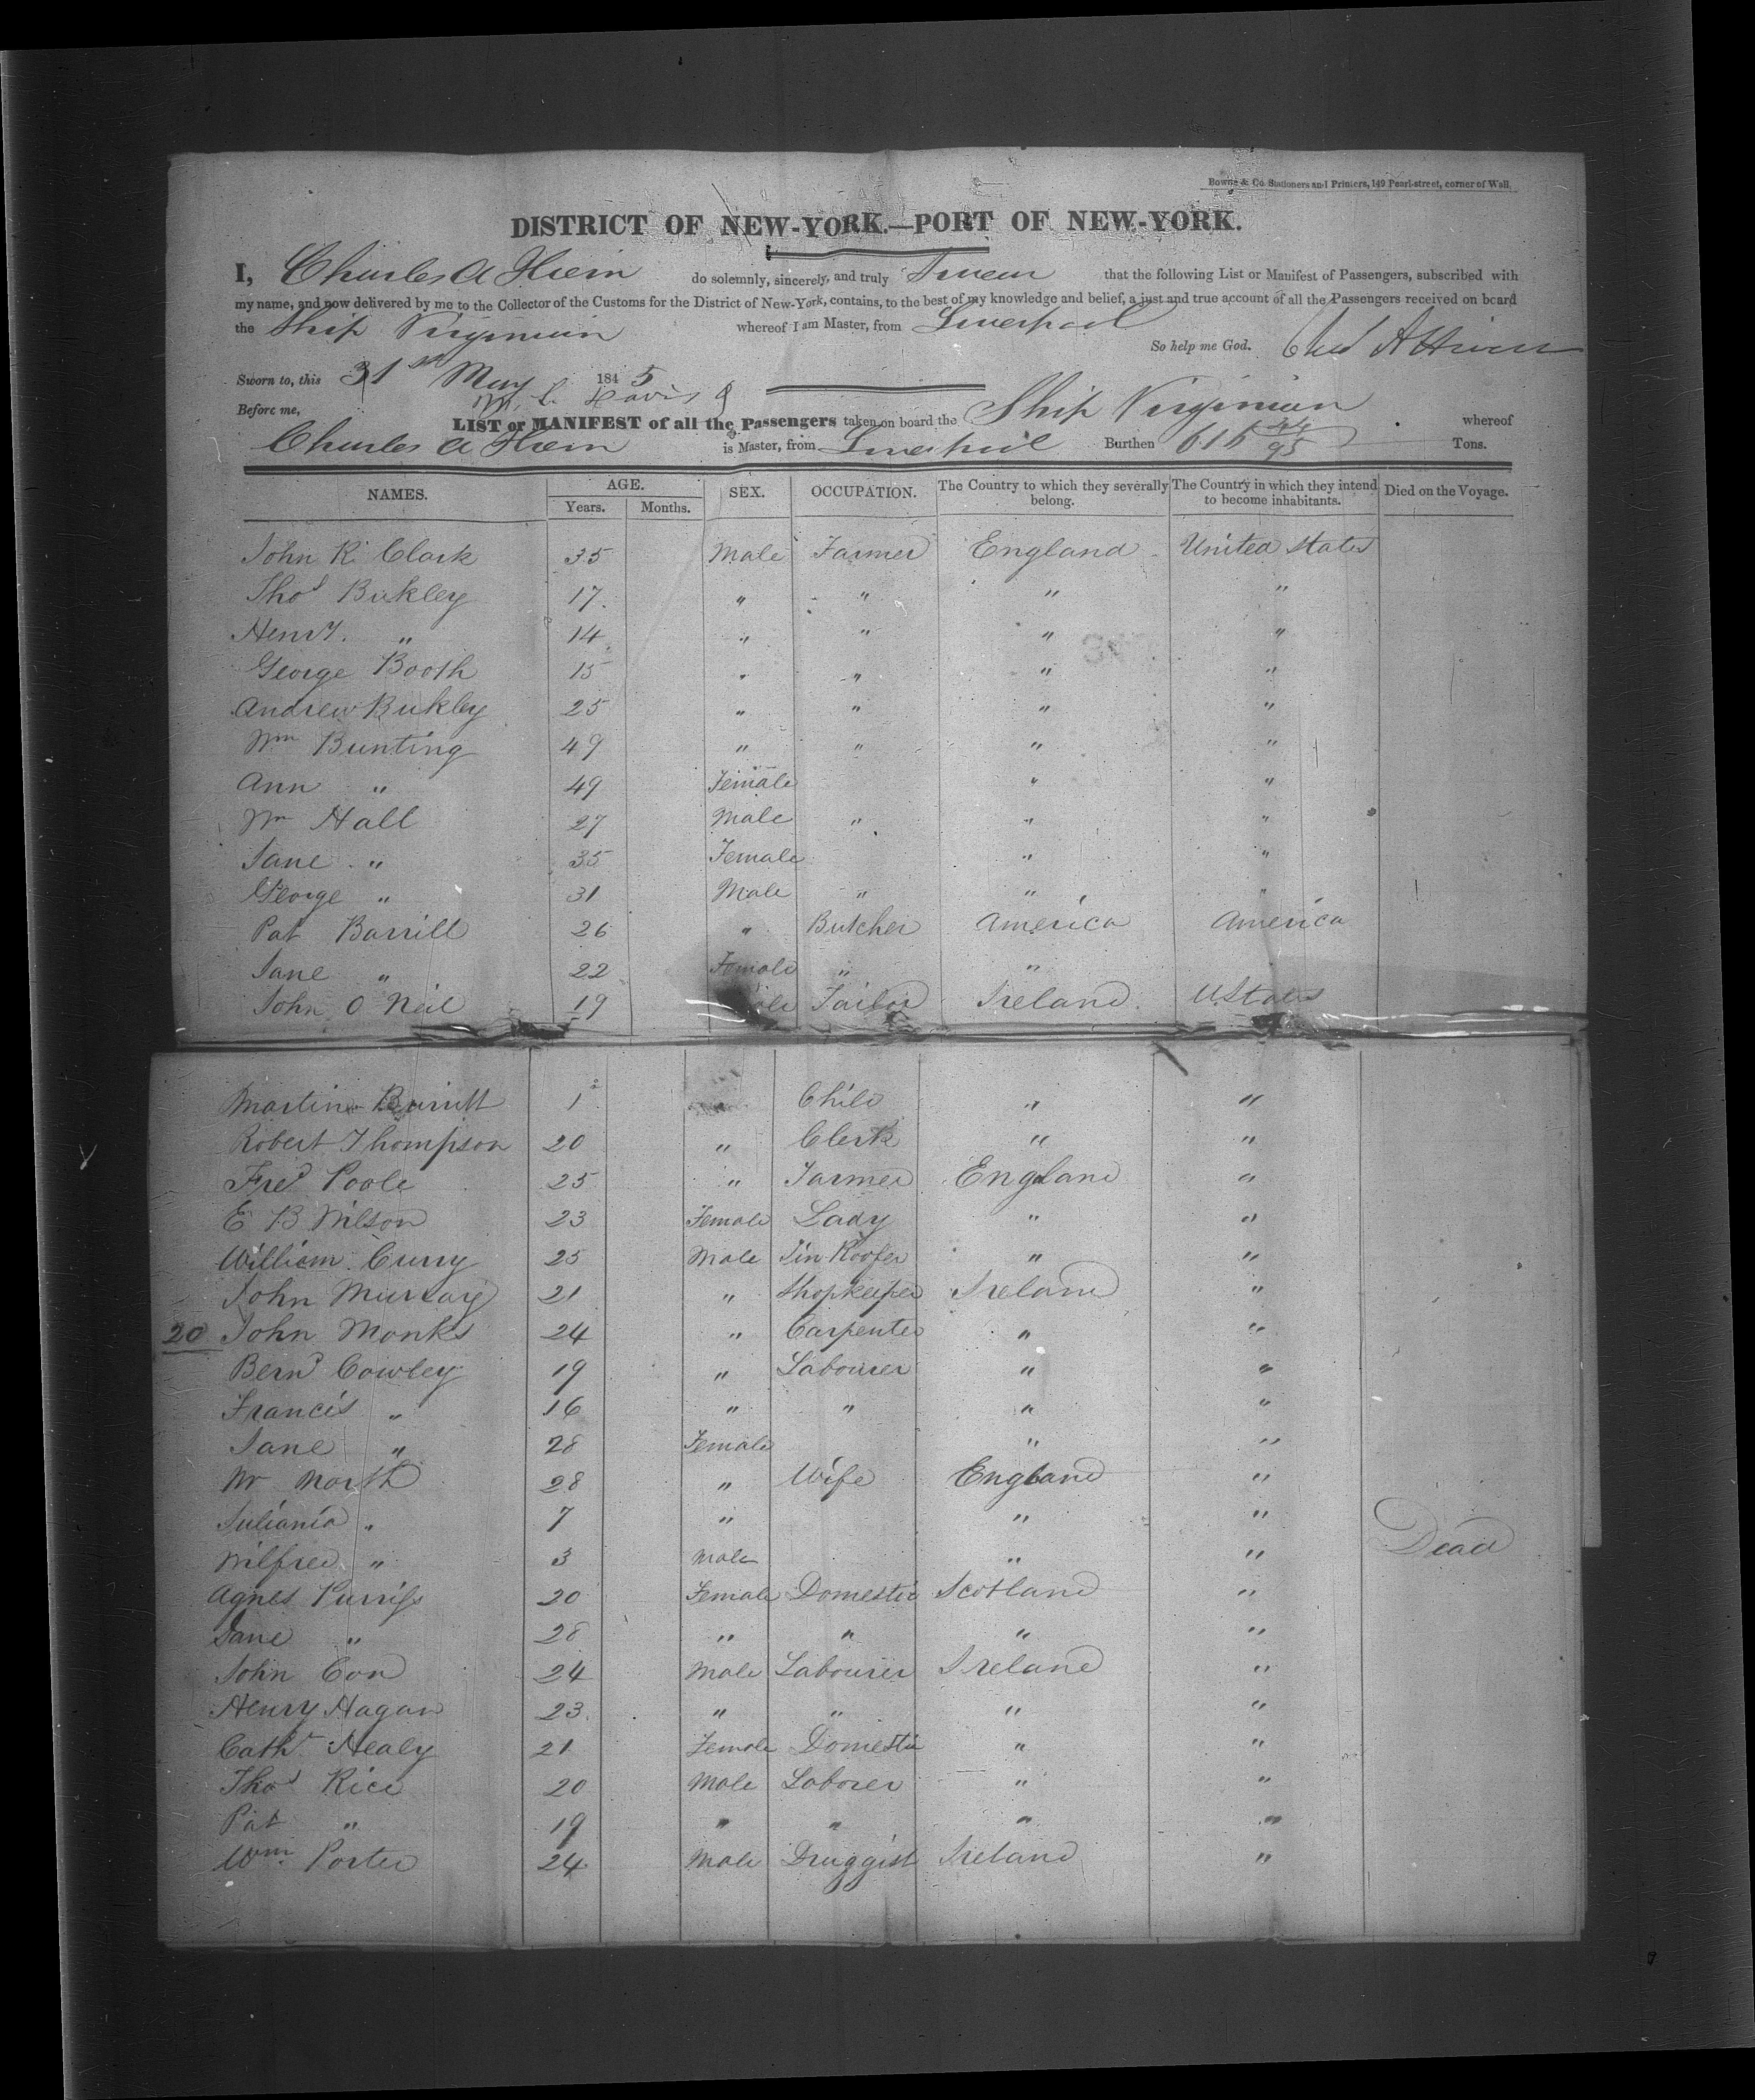 Bowne & Co. Stationers and Printers, 149 Pearl-street, corner of Wall.
DISTRICT OF NEW-YORK.—PORT OF NEW-YORK.
I, Charles A Heirn do solemnly, sincerely, and truly Swear that the following List or Manifest of Passengers, subscribed with
my name, and now delivered by me to the Collector of the Customs for the District of New-York, contains, to the best of my knowledge and belief, a just and true account of all the Passengers received on board
the Ship Virginian whereof I am Master, from Liverpool
So help me God. Chas A Heirn
Sworn to, this 31st May 1845
Before me, Davis
LIST or MANIFEST of all the Passengers taken on board the Ship Virginian whereof
Charles A Heirn is Master, from Liverpool Burthen 616 Tons.
NAMES. AGE. SEX. OCCUPATION. The Country to which they severally belong. The Country in which they intend to become inhabitants. Died on the Voyage.
Years. Months.
John R Clark 35 Male Farmer England United States
Thos Buckley 17 " " " "
Henry " 14 " " " "
George Booth 15 " " " "
Andrew Buckley 25 " " " "
Wm Bunting 49 " " " "
Ann " 49 Female " "
Wm Hall 27 Male " " "
Jane " 35 Female " "
George " 31 Male " " "
Pat Barrill 26 " Butcher America America
Jane " 22 Female " "
John O Neil 19 Male Tailor Ireland U States
Martin 1 Child " "
Robert Thompson 20 " Clerk " "
Fred Poole 25 " Farmer England "
E B Wilson 23 Female Lady " "
William Curry 25 Male Tin Roofer " "
John Murray 21 " Shopkeeper Ireland "
20 John Monks 24 " Carpenter " "
Bernd Cowley 19 " Labourer " "
Francis " 16 " " " "
Jane " 28 Female " "
North 28 " Wife England "
Juliania " 7 " " "
Wilfred " 3 Male " " Dead
Agnes Purviss 20 Female Domestic Scotland "
Jane " 28 " " " "
John Con 24 Male Labourer Ireland "
Henry Hagan 23 " " " "
Cath Healy 21 Female Domestic " "
Thos Rice 20 Male Laborer " "
Pat " 19 " " " "
Wm Porter 24 Male Druggist Ireland "